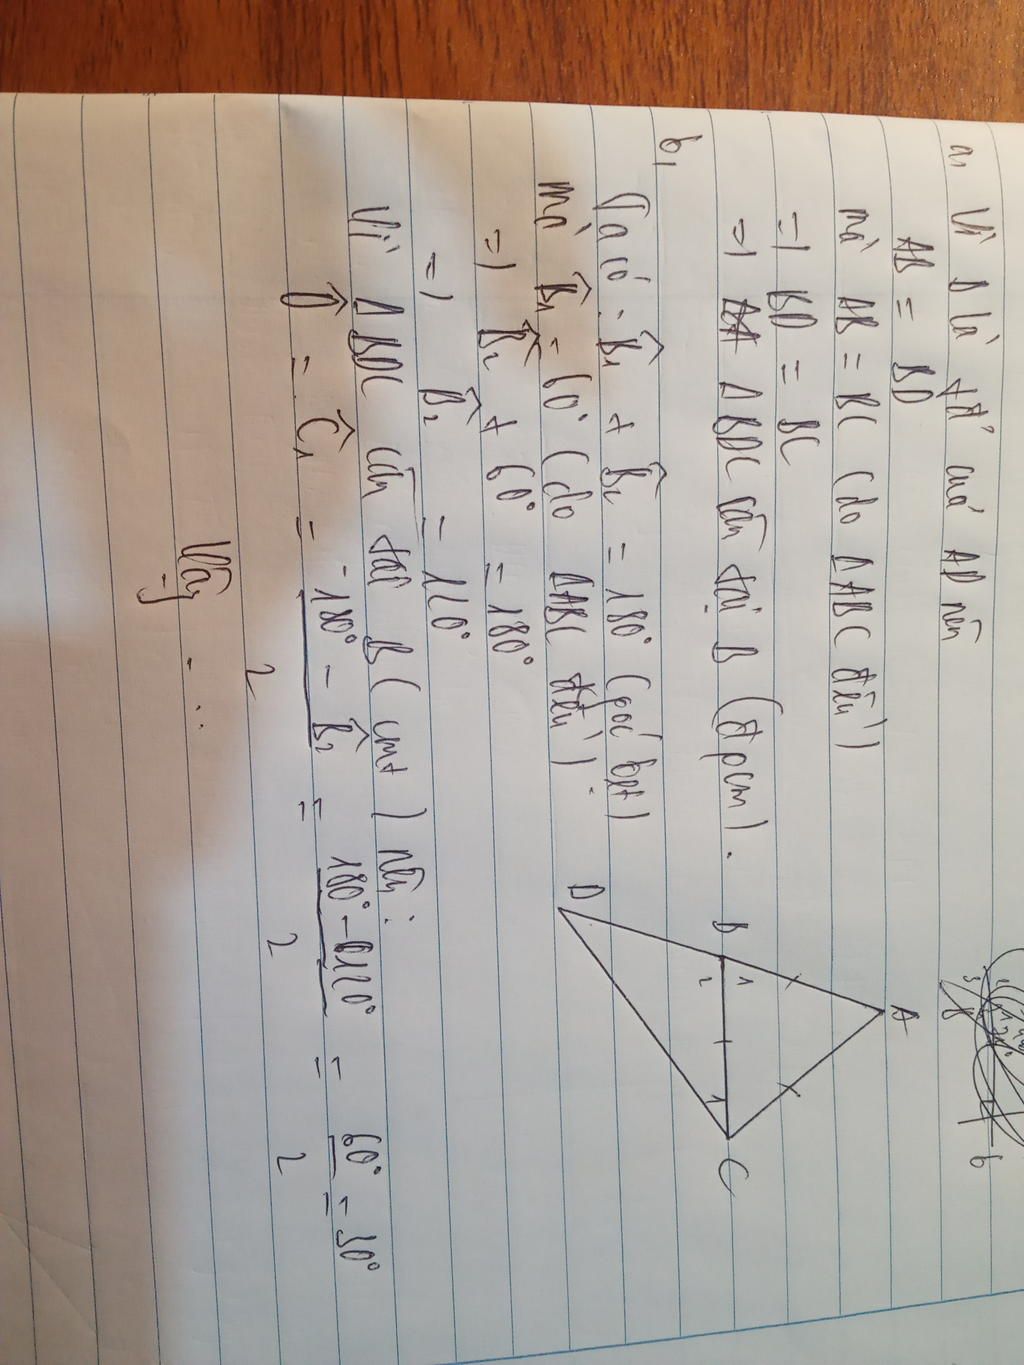 a, Vì B là tđ' của AD nên
AB = BD
mà AB = BC (do Δ ABC đều)
=> BD = BC
=> Δ BDC cân tại B (đpcm).
b,
Ta có: B̂1 + B̂2 = 180° (góc bẹt)
mà B̂1 = 60° (do ΔABC đều).
=> B̂2 + 60° = 180°
=> B̂2 = 120°
Vì Δ BDC cân tại B (cmt) nên:
D̂ = Ĉ1 = 180° - B̂2 / 2 = 180° - 120° / 2 = 60° / 2 = 30°
Vậy ...
A
B
1
2
1
C
D
6